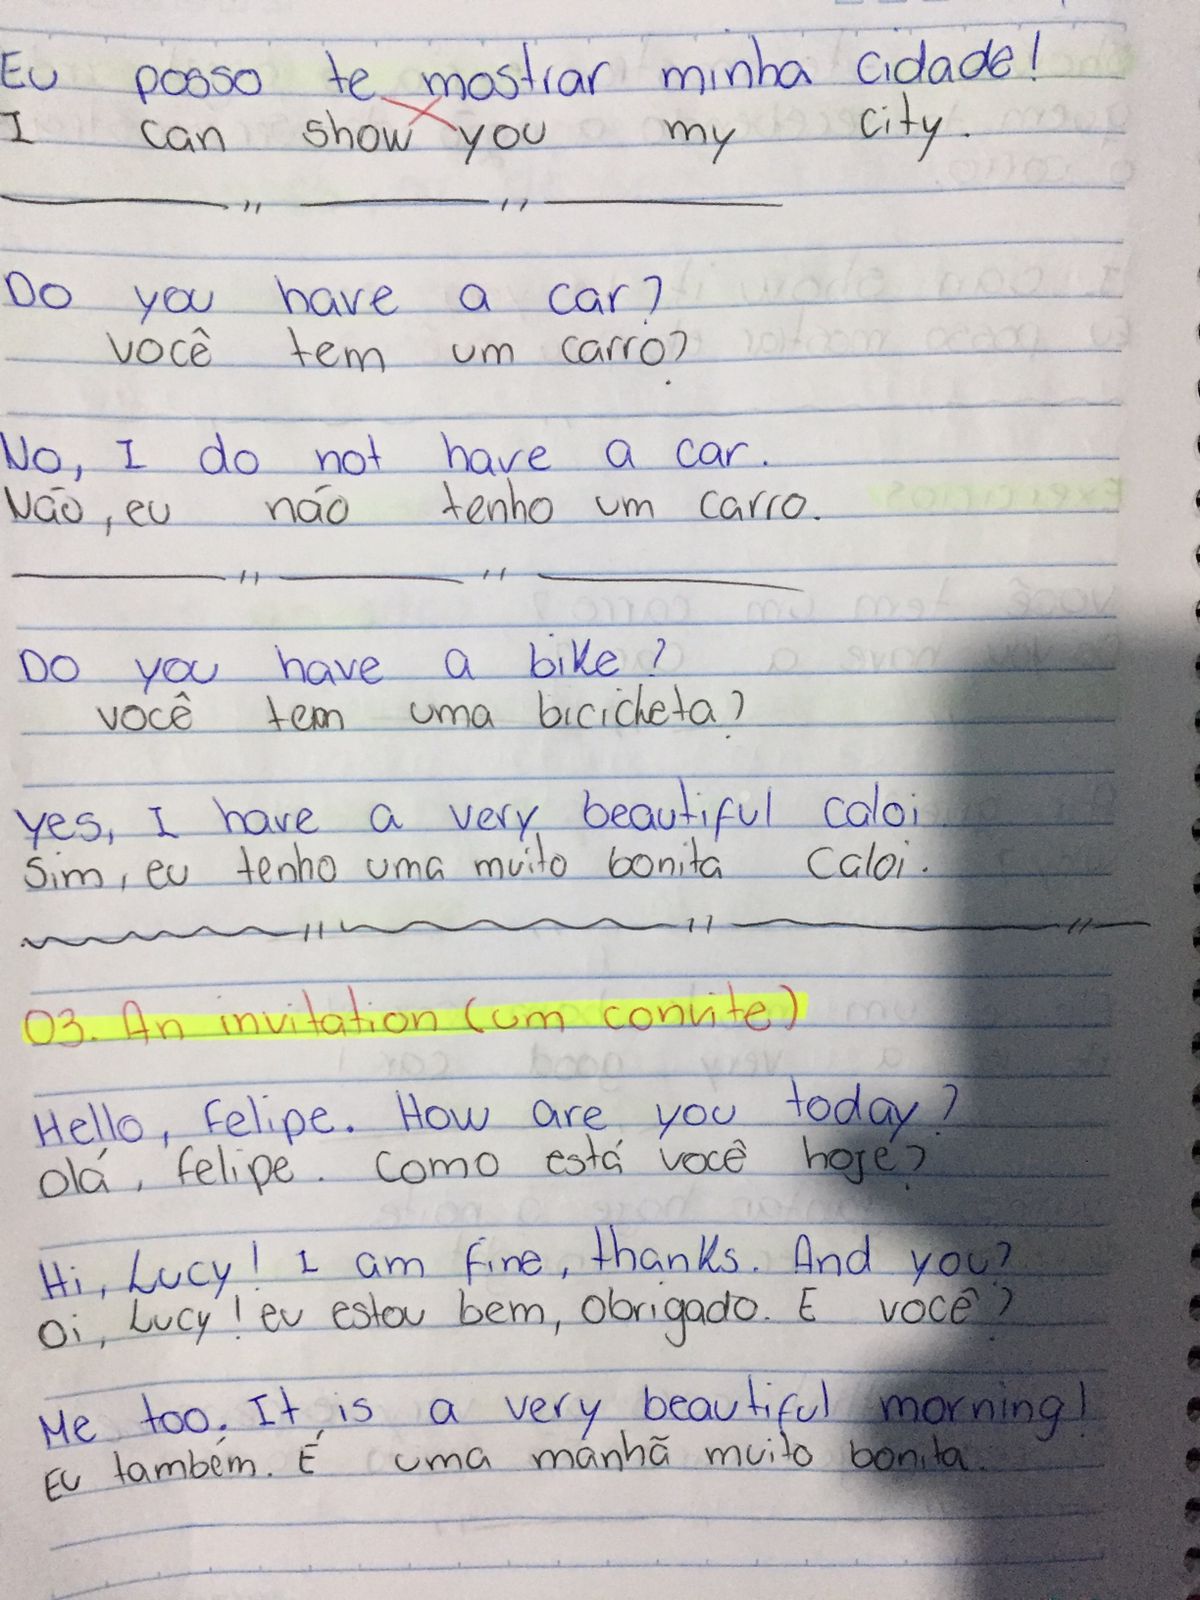 Eu posso te mostrar minha cidade!
I can show you my city.
Do you have a car?
você tem um carro?
No, I do not have a car.
Não, eu não tenho um carro.
Do you have a bike?
você tem uma bicicheta?
yes, I have a very beautiful caloi
Sim, eu tenho uma muito bonita Caloi.
03. An invitation (um convite)
Hello, Felipe. How are you today?
Olá, Felipe. Como está você hoje?
Hi, Lucy! I am fine, thanks. And you?
Oi, Lucy! eu estou bem, obrigado. E você?
Me too. It is a very beautiful morning!
Eu também. É uma manhã muito bonita.